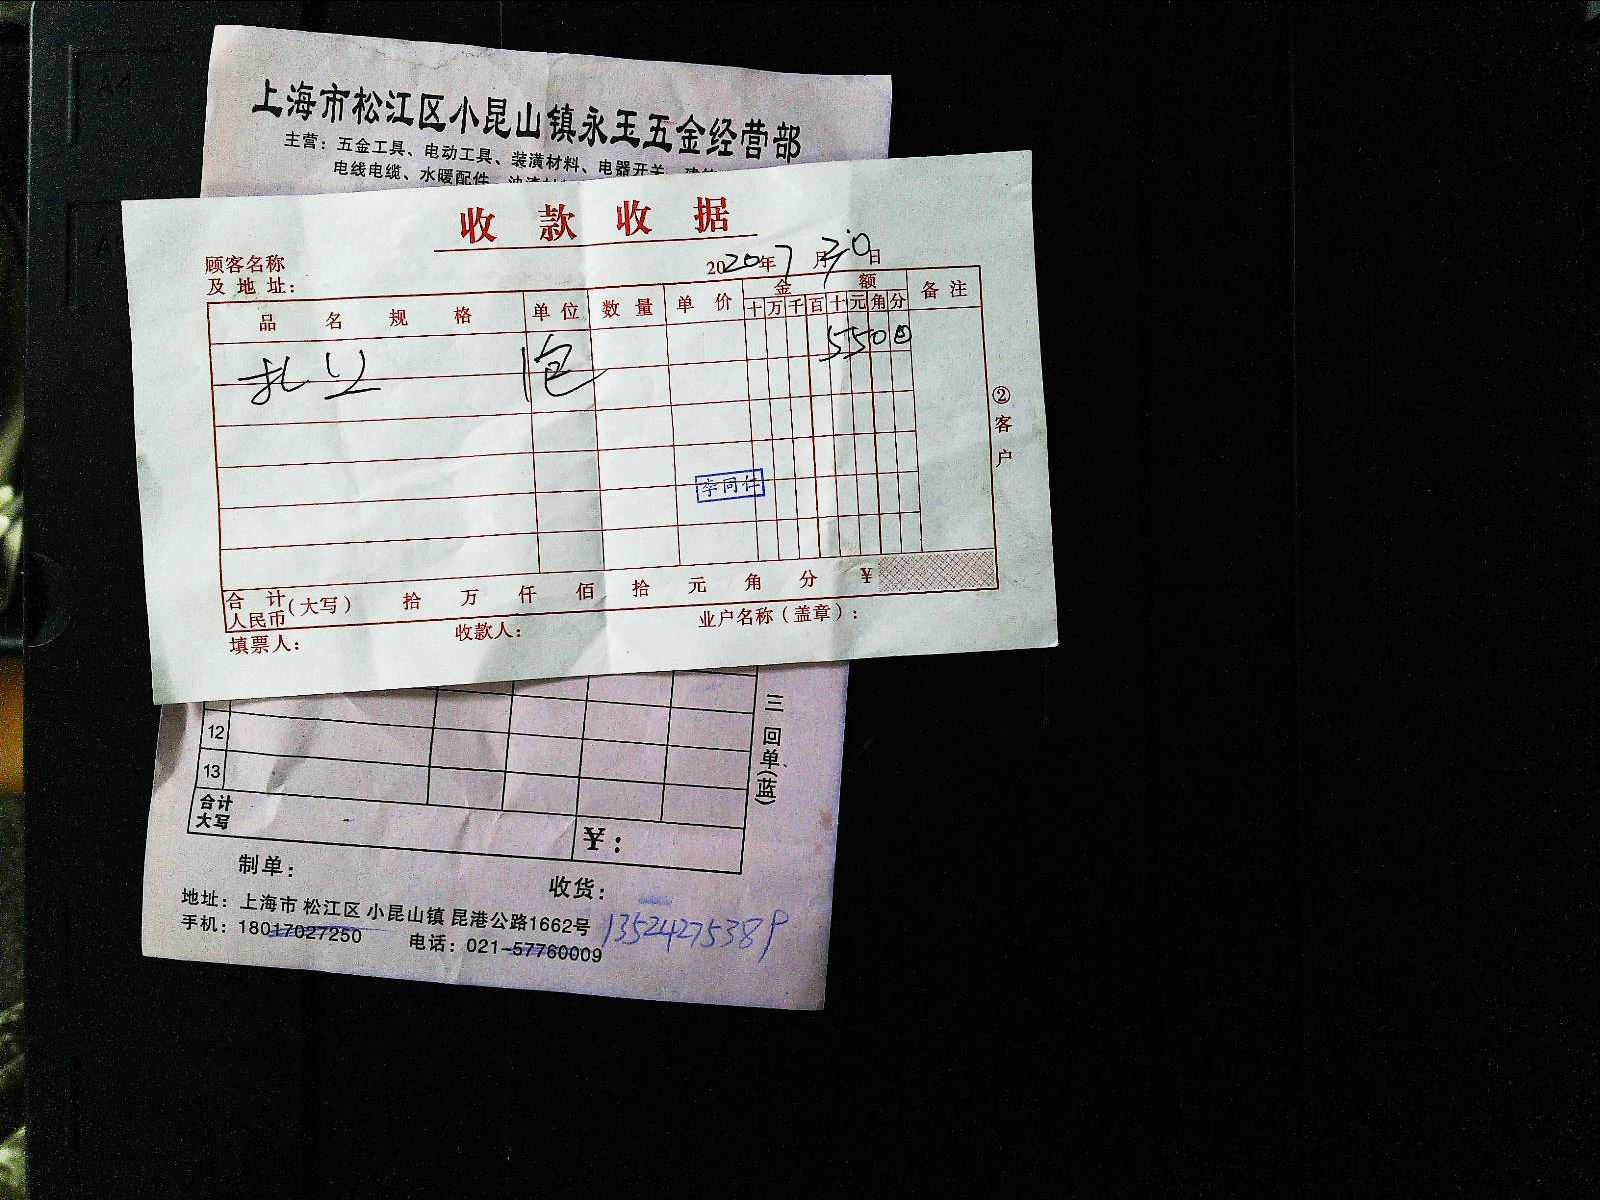 上海市松江区小昆山镇永玉五金经营部
主营：五金工具、电动工具、装潢材料、电器开关、建
电线电缆、水暖配件、油漆
收款收据
顾客名称
及地址：
2020年7月30日
品名规格 单位 数量 单价 金额 备注
十万千百十元角分
扎丝 1包 5500
李同仁
②客户
合计
人民币(大写) 拾 万 仟 佰 拾 元 角 分 ¥
填票人： 收款人： 业户名称（盖章）：
三回单(蓝)
12
13
合计
大写 ¥：
制单： 收货：
地址：上海市 松江区 小昆山镇 昆港公路1662号
手机：18017027250 电话：021-57760009 13524275389